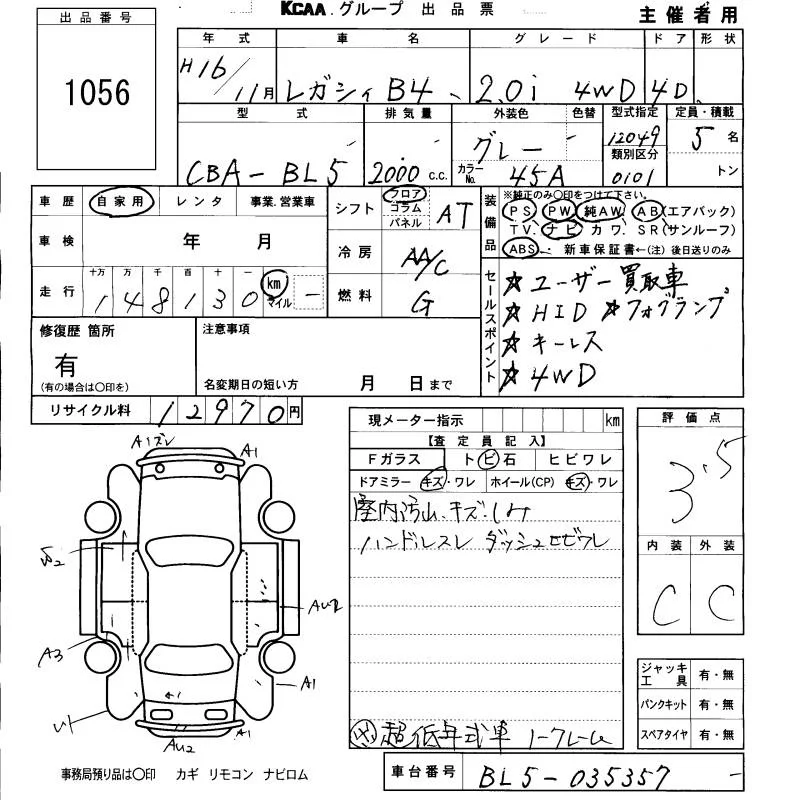 KCAA.グループ 出品票
主催者用
出品番号
1056
年式 車名 グレード ドア 形状
H16/11月 レガシィ B4 2.0i 4WD 4D
型式 排気量 外装色 色替 型式指定 定員・積載
CBA-BL5 2000c.c. グレー 12049 5名
カラーNo. 45A 類別区分 0101 トン
車歴 自家用 レンタ 事業.営業車
車検 年 月
走行 十万 万 千 百 十 一
148130 km マイル
シフト フロア コラム パネル AT
冷房 AA/C
燃料 G
装備品 ※純正のみ○印をつけて下さい。
PS PW 純AW. AB(エアバック)
TV. ナビ カワ. SR(サンルーフ)
ABS 新車保証書←(注)後日送りのみ
セールスポイント
☆ユーザー買取車
☆HID ☆フォグランプ
☆キーレス
☆4WD
修復歴 箇所
有
(有の場合は○印を)
注意事項
名変期日の短い方 月 日まで
リサイクル料 12970円
現メーター指示 km
【査定員記入】
Fガラス トビ石 ヒビワレ
ドアミラー キズ・ワレ ホイール(CP) キズ・ワレ
室内汚れ.キズ.しみ
ハンドルスレ ダッシュヒビワレ
超低年式車 ノークレーム
評価点
3.5
内装 外装
C C
ジャッキ工具 有・無
パンクキット 有・無
スペアタイヤ 有・無
A1ズレ A1
AU2
A3
A1
AU2 A1
事務局預り品は○印 カギ リモコン ナビロム
車台番号 BL5-035357